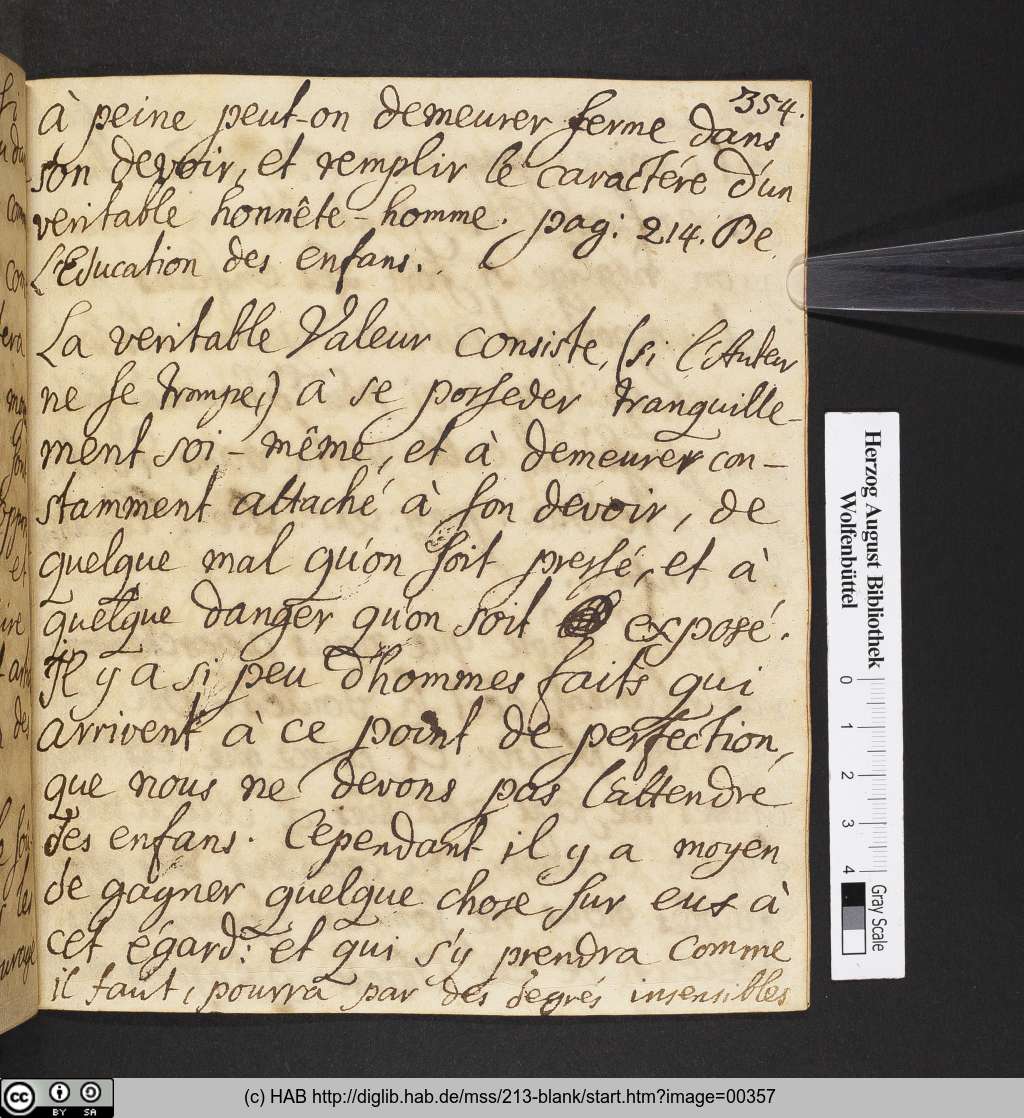 354.
à peine peut-on demeurer ferme dans
son devoir, et remplir le caractére d'un
veritable honnête-homme. pag: 214. De
L'Education des enfans.
La veritable Valeur consiste, (si l'Auteur
ne se trompe,) à se posseder tranquille-
ment soi-même, et à demeurer con-
stamment attaché à son devoir, de
quelque mal qu'on soit pressé, et à
quelque danger qu'on soit exposé.
Il y a si peu d'hommes faits qui
arrivent à ce point de perfection,
que nous ne devons pas l'attendre
des enfans. Cependant il y a moyen
de gagner quelque chose sur eux à
cet égard: et qui s'y prendra comme
il faut, pourra par des degrés insensibles
Herzog August Bibliothek
Wolfenbüttel
0 1 2 3 4
Gray Scale
cc BY SA
(c) HAB http://diglib.hab.de/mss/213-blank/start.htm?image=00357